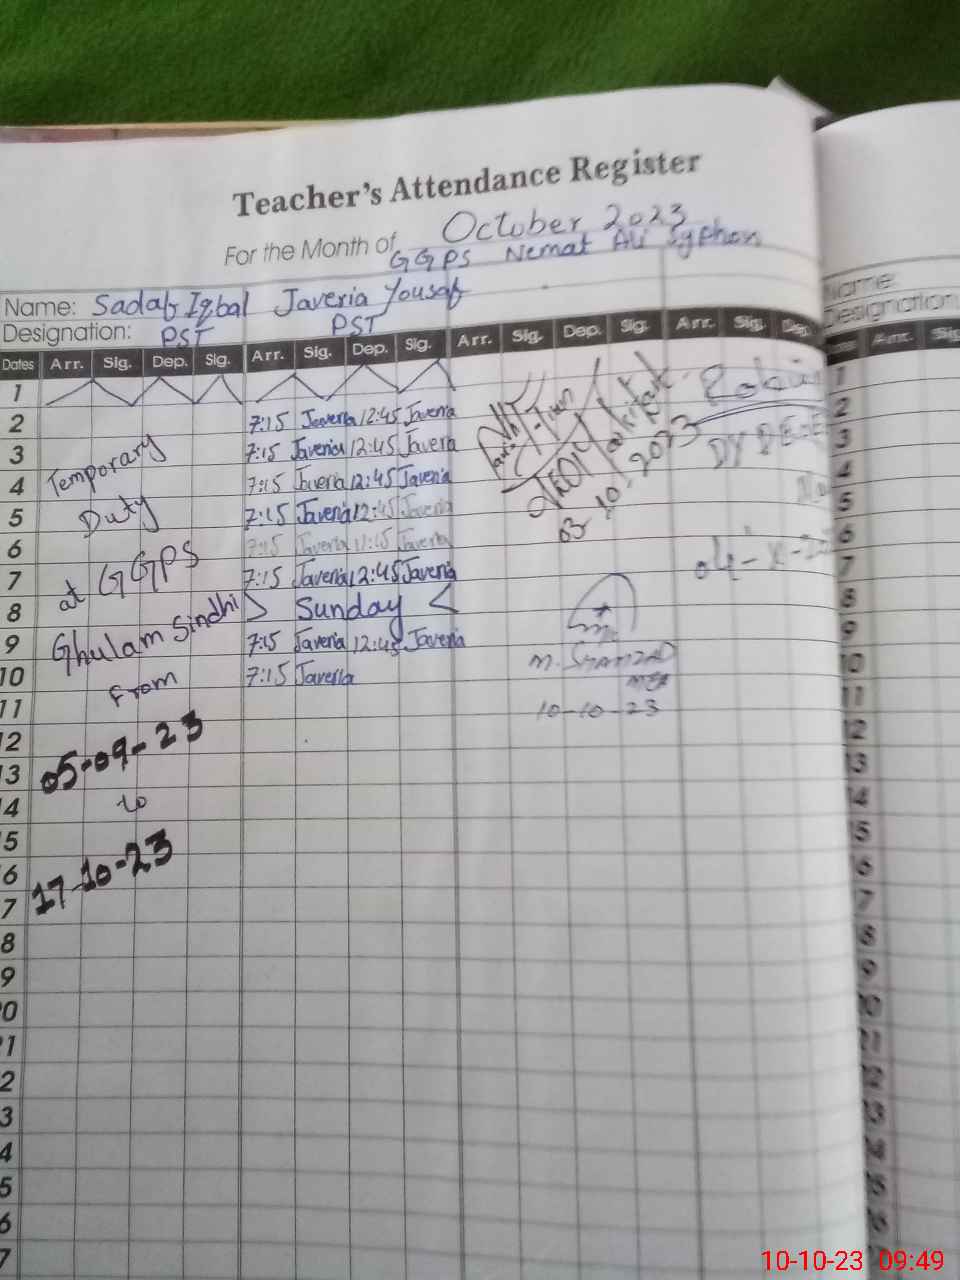 Teacher's Attendance Register
For the Month of October 2023
GGPS Nemat Ali Syphon
Name: Sadaf Iqbal Javeria Yousaf
Designation: PST PST
Dates Arr. Sig. Dep. Sig. Arr. Sig. Dep. Sig. Arr. Sig. Dep. Sig. Arr. Sig. Dep.
1
2 7:15 Javeria 12:45 Javeria
3 7:15 Javeria 12:45 Javeria
4 7:15 Javeria 12:45 Javeria
5 7:15 Javeria 12:45 Javeria
6 7:15 Javeria 11:45 Javeria
7 7:15 Javeria 12:45 Javeria
8 Sunday
9 7:15 Javeria 12:45 Javeria
10 7:15 Javeria
11
12
13
4
5
6
7
8
9
0
1
2
3
4
5
6
7
Temporary
Duty
at GGPS
Ghulam Sindhi
From
05-09-23
to
17-10-23
03-10-2023
04-X-23
M. Shahzad
10-10-23
Name:
Designation:
Arr. Sig
1
2
3
4
5
6
7
8
9
10
11
12
13
14
15
16
17
18
19
20
21
22
23
24
25
26
10-10-23 09:49